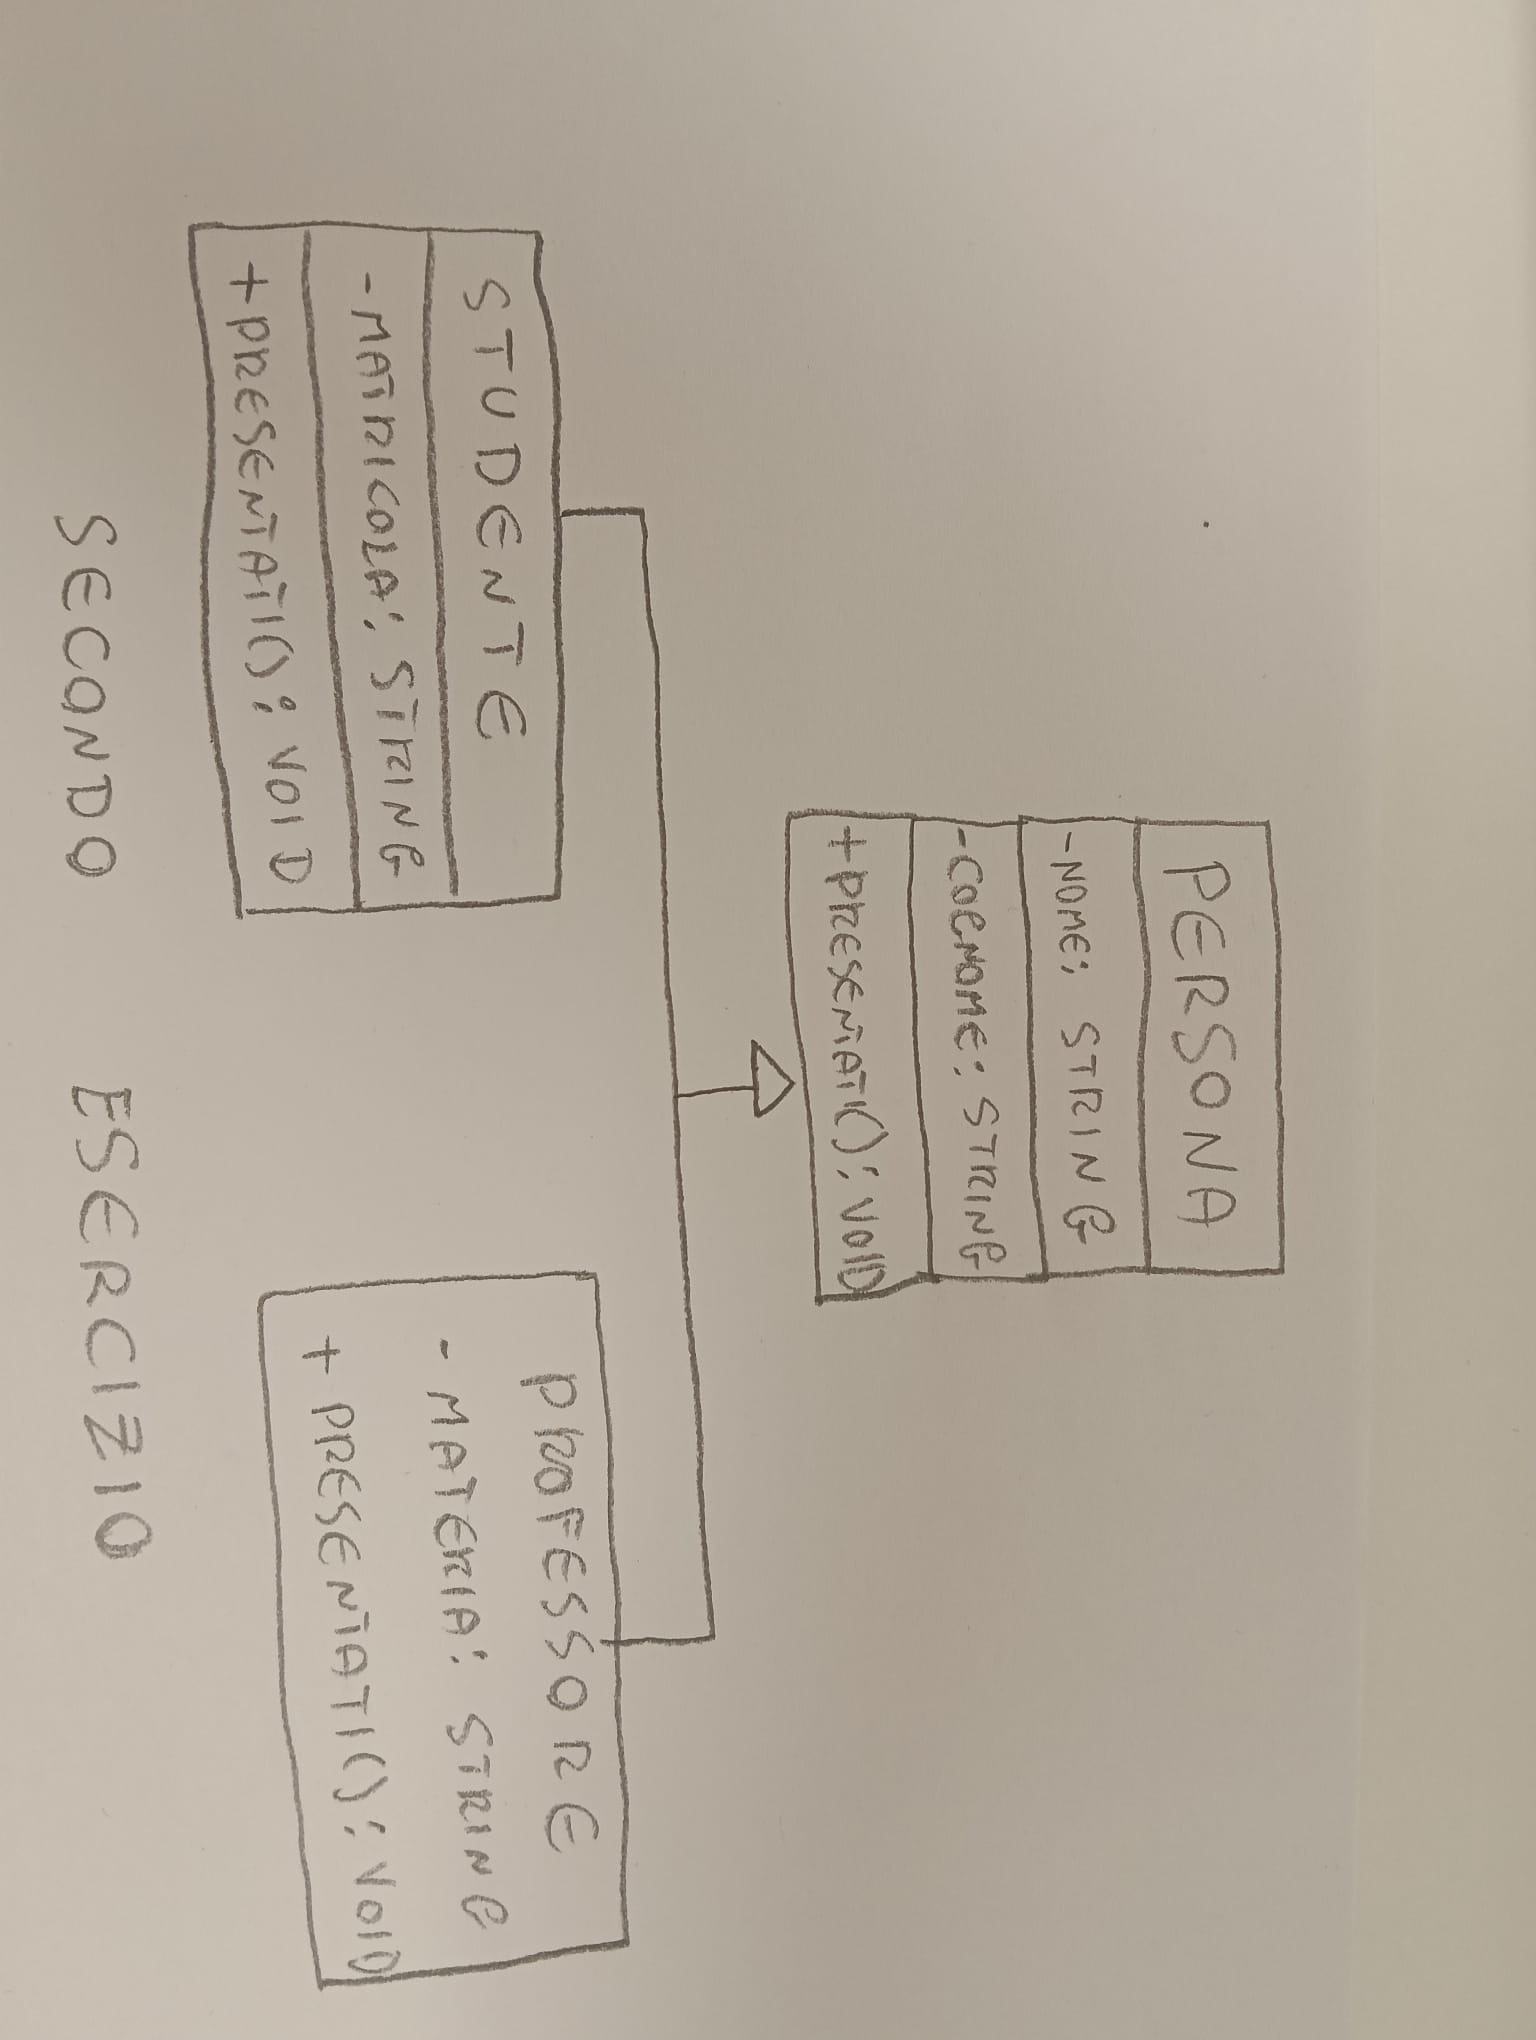 PERSONA
-NOME: STRING
-COGNOME: STRING
+PRESENTATI(): VOID
STUDENTE
-MATRICOLA: STRING
+PRESENTATI(): VOID
PROFESSORE
- MATERIA: STRING
+ PRESENTATI(): VOID
SECONDO ESERCIZIO